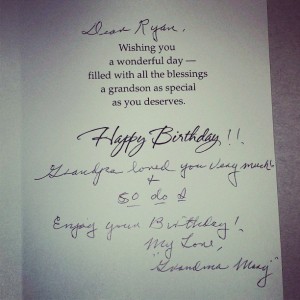 Dear Ryan,
Wishing you
a wonderful day —
filled with all the blessings
a grandson as special
as you deserves.
Happy Birthday!!
Grandpa loved you very much!
+
so do I
Enjoy your Birthday!
My Love,
"Grandma Mary"